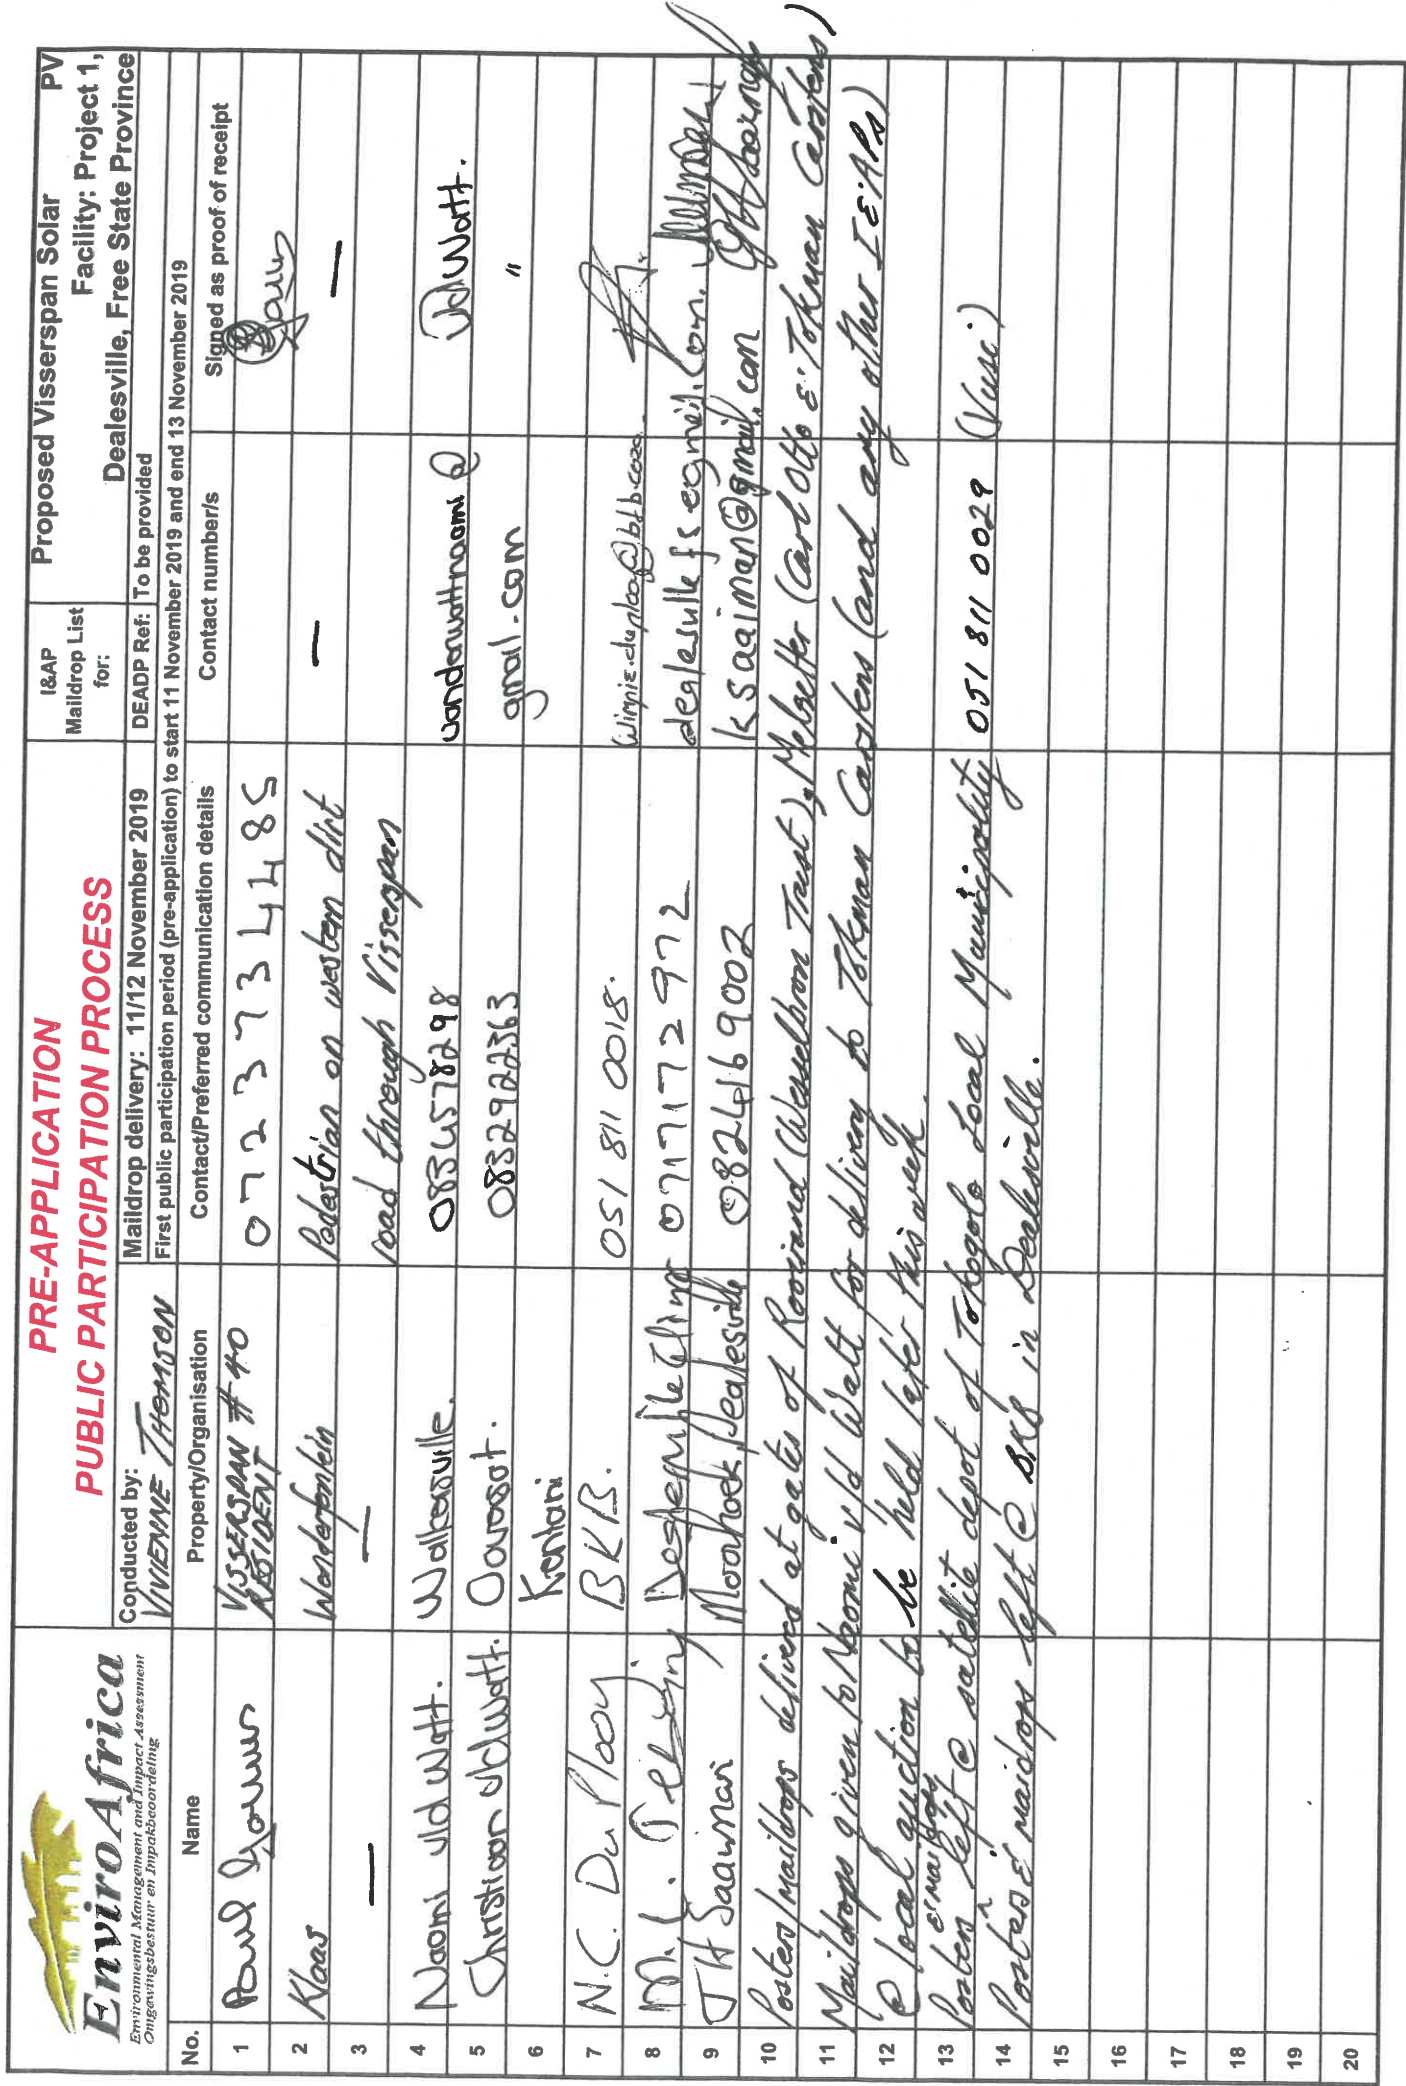 EnviroAfrica
Environmental Management and Impact Assessment
Omgewingsbestuur en Impakbeoordeling
PRE-APPLICATION
PUBLIC PARTICIPATION PROCESS
I&AP
Maildrop List
for:
Proposed Visserspan Solar PV
Facility: Project 1,
Dealesville, Free State Province
Conducted by:
VIVIENNE THOMSON
Maildrop delivery: 11/12 November 2019
DEADP Ref: To be provided
First public participation period (pre-application) to start 11 November 2019 and end 13 November 2019
No. Name Property/Organisation Contact/Preferred communication details Contact number/s Signed as proof of receipt
1 Paul VISSERSPAN #40 RESIDENT 0723734485
2 Klaas Wonderfontein Pedestrian on western dirt — —
3 — — road through Visserspan
4 Naomi vld Watt. Walkersville. 0834578298 vanderwattnaomi@ vd Watt.
5 Christiaan vld Watt. Oorsrot. 0832922363 gmail.com "
6 Kenlani
7 N.C. Du Plooy BKB. 051 811 0018.
8 M.L. 0717172972
9 JH Saaiman Moorhoek/Dealesville 0824169002 ksaaiman@gmail.com
10 Posters/maildrops delivered at gates of Rooirand (Wesselbron Trust), Melsetter (Carl Otto & Tokman Carstens)
11 Maildrops given to Naomi v/d Watt for delivery to Tokman Carstens (and any other I&APs)
12 @ local auction to be held later this week.
13 Posters & maildrops left @ satellite depot of Tokogolo Local Municipality 051 811 0029 (Vusi)
14 Posters & maidrops left @ BKB in Dealesville.
15
16
17
18
19
20